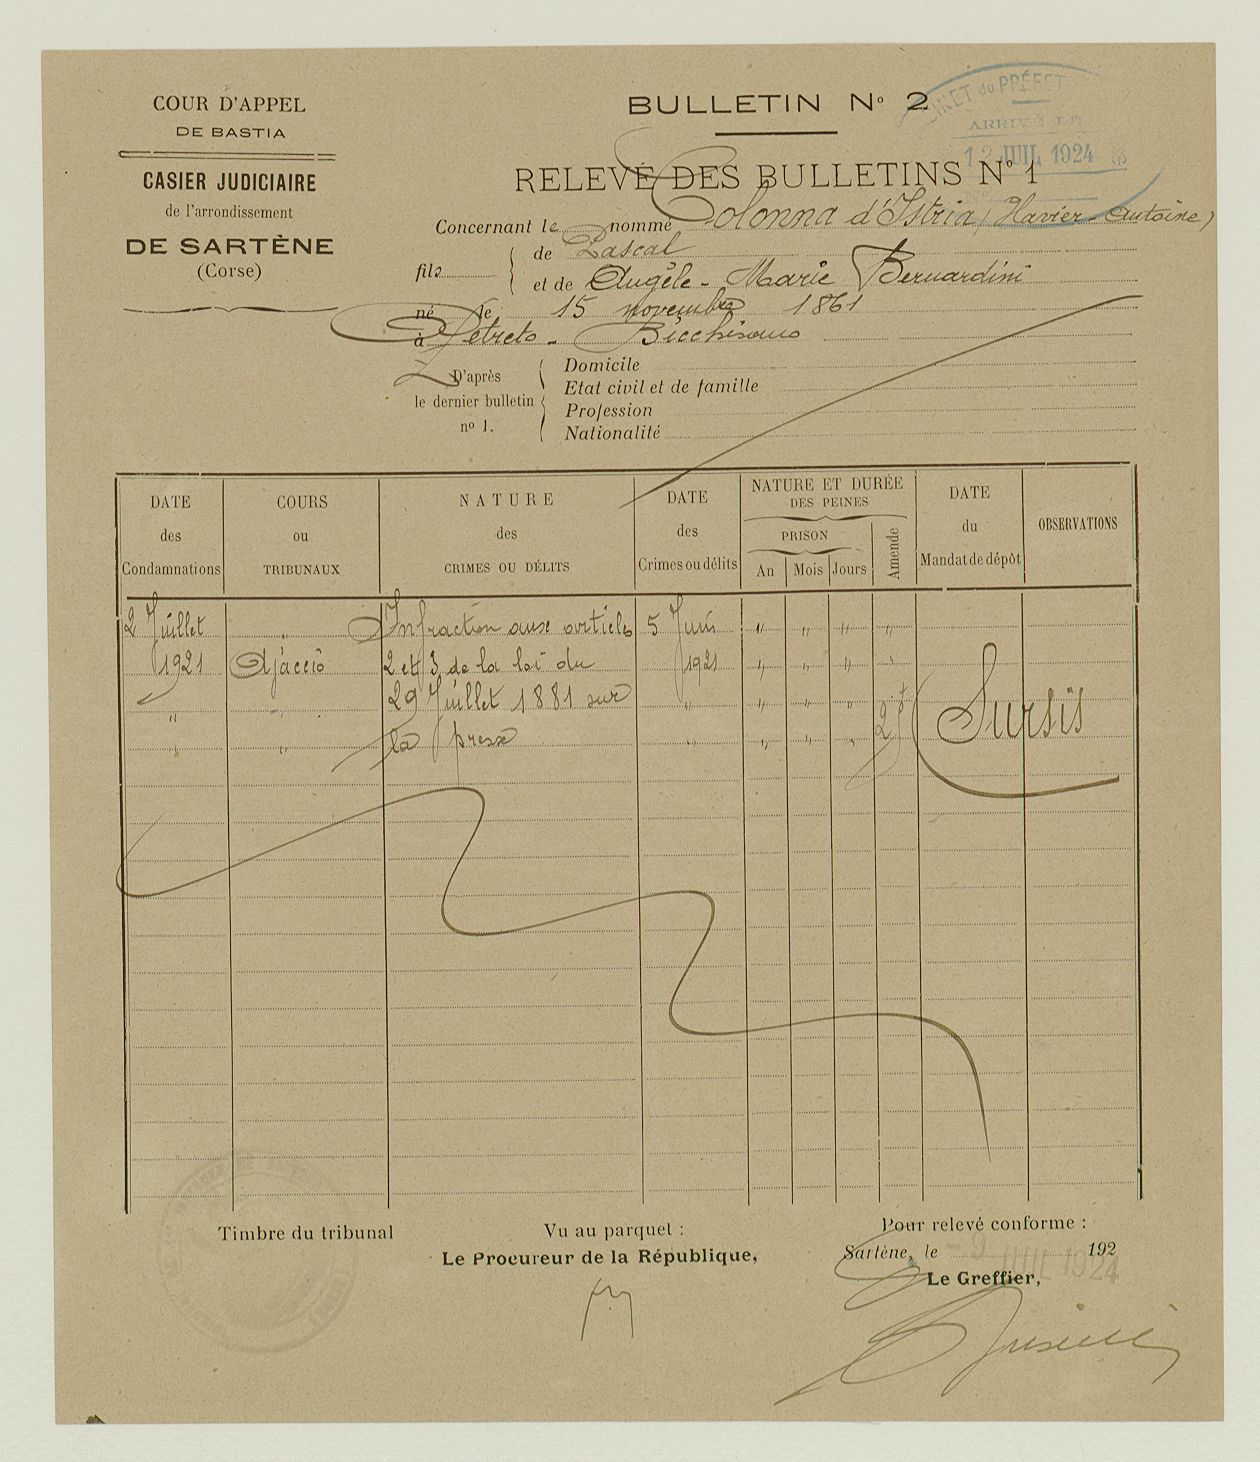 COUR D'APPEL
DE BASTIA
CASIER JUDICIAIRE
de l'arrondissement
DE SARTÈNE
(Corse)
BULLETIN No 2
CABINET du PRÉFET
ARRIVÉ LE
12 JUIL 1924
RELEVÉ DES BULLETINS No 1
Concernant le nommé Colonna d'Istria (Xavier-Antoine)
fils de Pascal
et de Angèle-Marie Bernardini
né le 15 novembre 1861
à Petreto-Bicchisano
D'après
le dernier bulletin
no 1.
Domicile
Etat civil et de famille
Profession
Nationalité
DATE
des
Condamnations
COURS
ou
TRIBUNAUX
NATURE
des
CRIMES OU DÉLITS
DATE
des
Crimes ou délits
NATURE ET DURÉE
DES PEINES
PRISON
An Mois Jours
Amende
DATE
du
Mandat de dépôt
OBSERVATIONS
2 Juillet " Infraction aux articles 5 Juin " " " "
1921 Ajaccio 2 et 3 de la loi du 1921 " " " "
" " 29 Juillet 1881 sur " " " " 2 f Sursis
" " la presse " " " "
Timbre du tribunal
Vu au parquet :
Le Procureur de la République,
Pour relevé conforme :
Sartène, le - 9 JUIL 1924 192
Le Greffier,